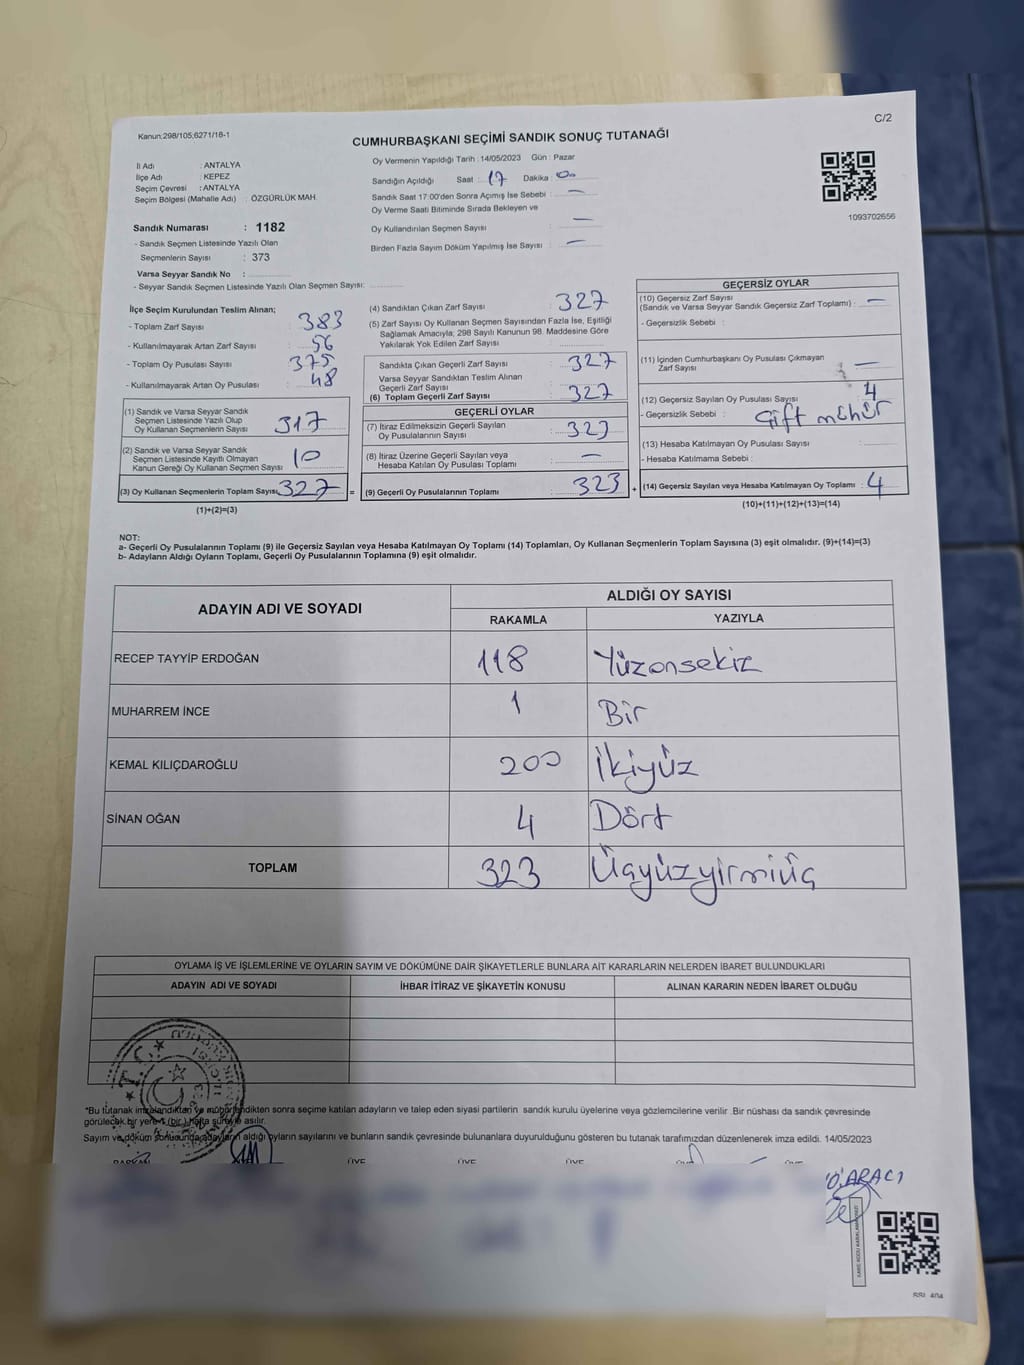 Kanun:298/105;6271/18-1
C/2
CUMHURBAŞKANI SEÇİMİ SANDIK SONUÇ TUTANAĞI
İl Adı : ANTALYA
İlçe Adı : KEPEZ
Seçim Çevresi : ANTALYA
Seçim Bölgesi (Mahalle Adı) : ÖZGÜRLÜK MAH.
Oy Vermenin Yapıldığı Tarih : 14/05/2023 Gün : Pazar
Sandığın Açıldığı Saat : 17 Dakika : 00
Sandık Saat 17:00'den Sonra Açımış İse Sebebi : —
Oy Verme Saati Bitiminde Sırada Bekleyen ve
Oy Kullandırılan Seçmen Sayısı : —
Birden Fazla Sayım Döküm Yapılmış İse Sayısı : —
1093702656
Sandık Numarası : 1182
- Sandık Seçmen Listesinde Yazılı Olan
Seçmenlerin Sayısı : 373
Varsa Seyyar Sandık No :
- Seyyar Sandık Seçmen Listesinde Yazılı Olan Seçmen Sayısı:
İlçe Seçim Kurulundan Teslim Alınan;
- Toplam Zarf Sayısı : 383
- Kullanılmayarak Artan Zarf Sayısı : 56
- Toplam Oy Pusulası Sayısı : 375
- Kullanılmayarak Artan Oy Pusulası : 48
(1) Sandık ve Varsa Seyyar Sandık
Seçmen Listesinde Yazılı Olup
Oy Kullanan Seçmenlerin Sayısı : 317
(2) Sandık ve Varsa Seyyar Sandık
Seçmen Listesinde Kayıtlı Olmayan
Kanun Gereği Oy Kullanan Seçmen Sayısı 10
(3) Oy Kullanan Seçmenlerin Toplam Sayısı: 327
(1)+(2)=(3)
(4) Sandıktan Çıkan Zarf Sayısı : 327
(5) Zarf Sayısı Oy Kullanan Seçmen Sayısından Fazla İse, Eşitliği
Sağlamak Amacıyla; 298 Sayılı Kanunun 98. Maddesine Göre
Yakılarak Yok Edilen Zarf Sayısı :
Sandıkta Çıkan Geçerli Zarf Sayısı : 327
Varsa Seyyar Sandıktan Teslim Alınan
Geçerli Zarf Sayısı
(6) Toplam Geçerli Zarf Sayısı : 327
GEÇERLİ OYLAR
(7) İtiraz Edilmeksizin Geçerli Sayılan
Oy Pusulalarının Sayısı : 323
(8) İtiraz Üzerine Geçerli Sayılan veya
Hesaba Katılan Oy Pusulası Toplamı : —
= (9) Geçerli Oy Pusulalarının Toplamı : 323
GEÇERSİZ OYLAR
(10) Geçersiz Zarf Sayısı
(Sandık ve Varsa Seyyar Sandık Geçersiz Zarf Toplamı) : —
- Geçersizlik Sebebi :
(11) İçinden Cumhurbaşkanı Oy Pusulası Çıkmayan
Zarf Sayısı : —
(12) Geçersiz Sayılan Oy Pusulası Sayısı : 4
- Geçersizlik Sebebi : Çift mühür
(13) Hesaba Katılmayan Oy Pusulası Sayısı :
- Hesaba Katılmama Sebebi :
+ (14) Geçersiz Sayılan veya Hesaba Katılmayan Oy Toplamı : 4
(10)+(11)+(12)+(13)=(14)
NOT:
a- Geçerli Oy Pusulalarının Toplamı (9) ile Geçersiz Sayılan veya Hesaba Katılmayan Oy Toplamı (14) Toplamları, Oy Kullanan Seçmenlerin Toplam Sayısına (3) eşit olmalıdır. (9)+(14)=(3)
b- Adayların Aldığı Oyların Toplamı, Geçerli Oy Pusulalarının Toplamına (9) eşit olmalıdır.
ADAYIN ADI VE SOYADI ALDIĞI OY SAYISI
RAKAMLA YAZIYLA
RECEP TAYYİP ERDOĞAN 118 Yüzonsekiz
MUHARREM İNCE 1 Bir
KEMAL KILIÇDAROĞLU 200 İkiyüz
SİNAN OĞAN 4 Dört
TOPLAM 323 Üçyüzyirmiüç
OYLAMA İŞ VE İŞLEMLERİNE VE OYLARIN SAYIM VE DÖKÜMÜNE DAİR ŞİKAYETLERLE BUNLARA AİT KARARLARIN NELERDEN İBARET BULUNDUKLARI
ADAYIN ADI VE SOYADI İHBAR İTİRAZ VE ŞİKAYETİN KONUSU ALINAN KARARIN NEDEN İBARET OLDUĞU
T.C.
*Bu tutanak imzalandıktan ve mühürlendikten sonra seçime katılan adayların ve talep eden siyasi partilerin sandık kurulu üyelerine veya gözlemcilerine verilir .Bir nüshası da sandık çevresinde
görülecek bir yere 1 (bir ) hafta süreyle asılır.
Sayım ve döküm sonucunda adayların aldığı oyların sayılarını ve bunların sandık çevresinde bulunanlara duyurulduğunu gösteren bu tutanak tarafımızdan düzenlenerek imza edildi. 14/05/2023
BAŞKAN ÜYE ÜYE ÜYE ÜYE ÜYE